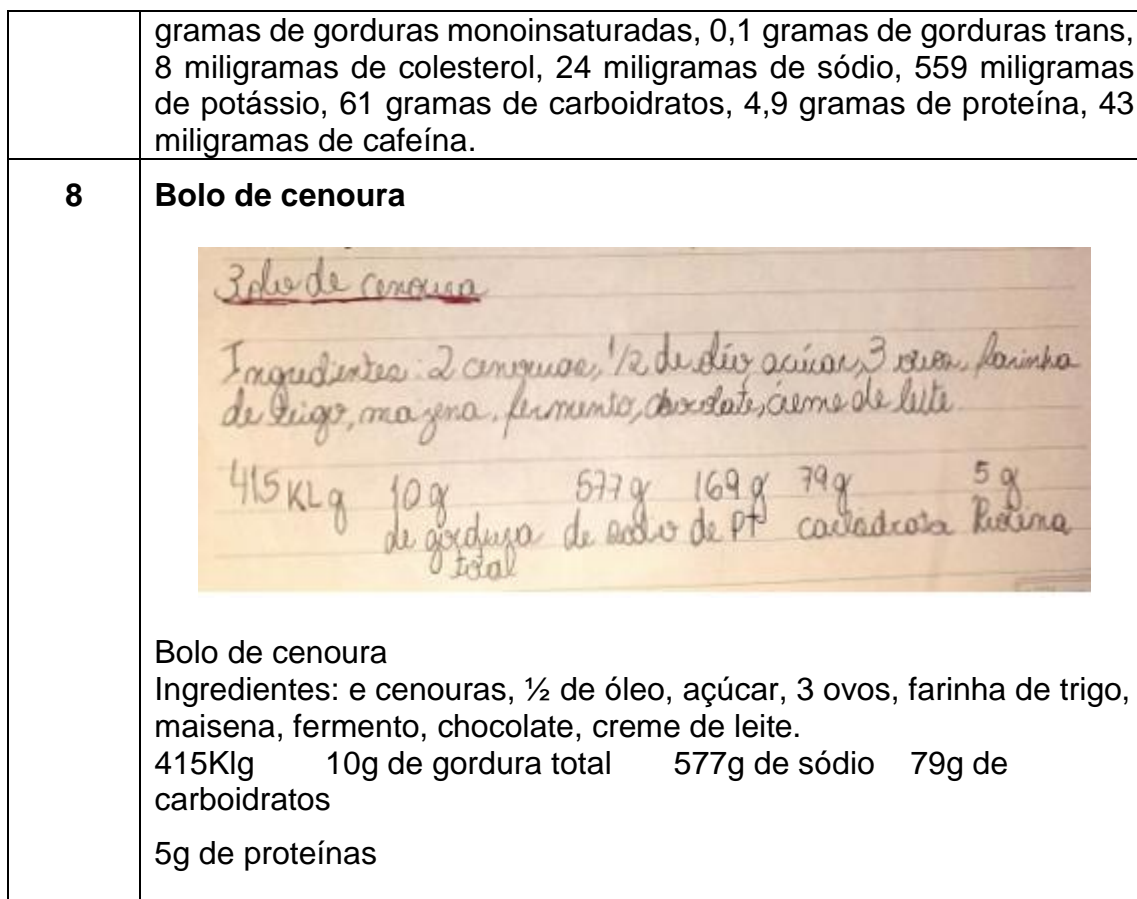 gramas de gorduras monoinsaturadas, 0,1 gramas de gorduras trans,
8 miligramas de colesterol, 24 miligramas de sódio, 559 miligramas
de potássio, 61 gramas de carboidratos, 4,9 gramas de proteína, 43
miligramas de cafeína.
8 Bolo de cenoura
Bolo de cenoura
Ingredientes: 2 cenouras, 1/2 de óleo, açúcar, 3 ovos, farinha
de trigo, mazena, fermento, chocolate, creme de leite.
415 KLg 10g 577g 169g 79g 5g
de gordura de sodio de PT Proteina
total
Bolo de cenoura
Ingredientes: e cenouras, ½ de óleo, açúcar, 3 ovos, farinha de trigo,
maisena, fermento, chocolate, creme de leite.
415Klg 10g de gordura total 577g de sódio 79g de
carboidratos
5g de proteínas